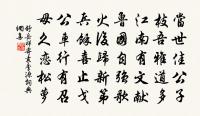 當世佳公子
枝吾道多
江南有文献
魯國自弦歌
火後歸新第
兵餘喜止戈
公車行有召
毋久恋松萝
舒岳祥